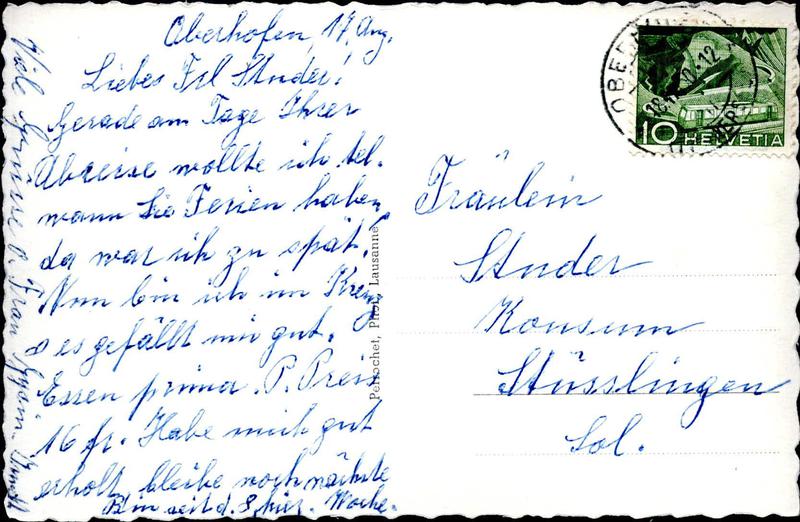 Oberhofen, 17. Aug.
Liebes Frl Studer!
Gerade am Tage Ihrer
Abreise wollte ich tel.
wann Sie Ferien haben,
da war ich zu spät.
Nun bin ich im Kreuz
es gefällt mir gut.
Essen prima. P. Preis
16 fr. Habe mich gut
erholt, bleibe noch nächste
Woche.
Bin seit d. 8. hier.
Viele Grüsse a. Frau
Perrochet, Phot. Lausanne
10 HELVETIA
Fräulein
Studer
Konsum
Stüsslingen
Sol.